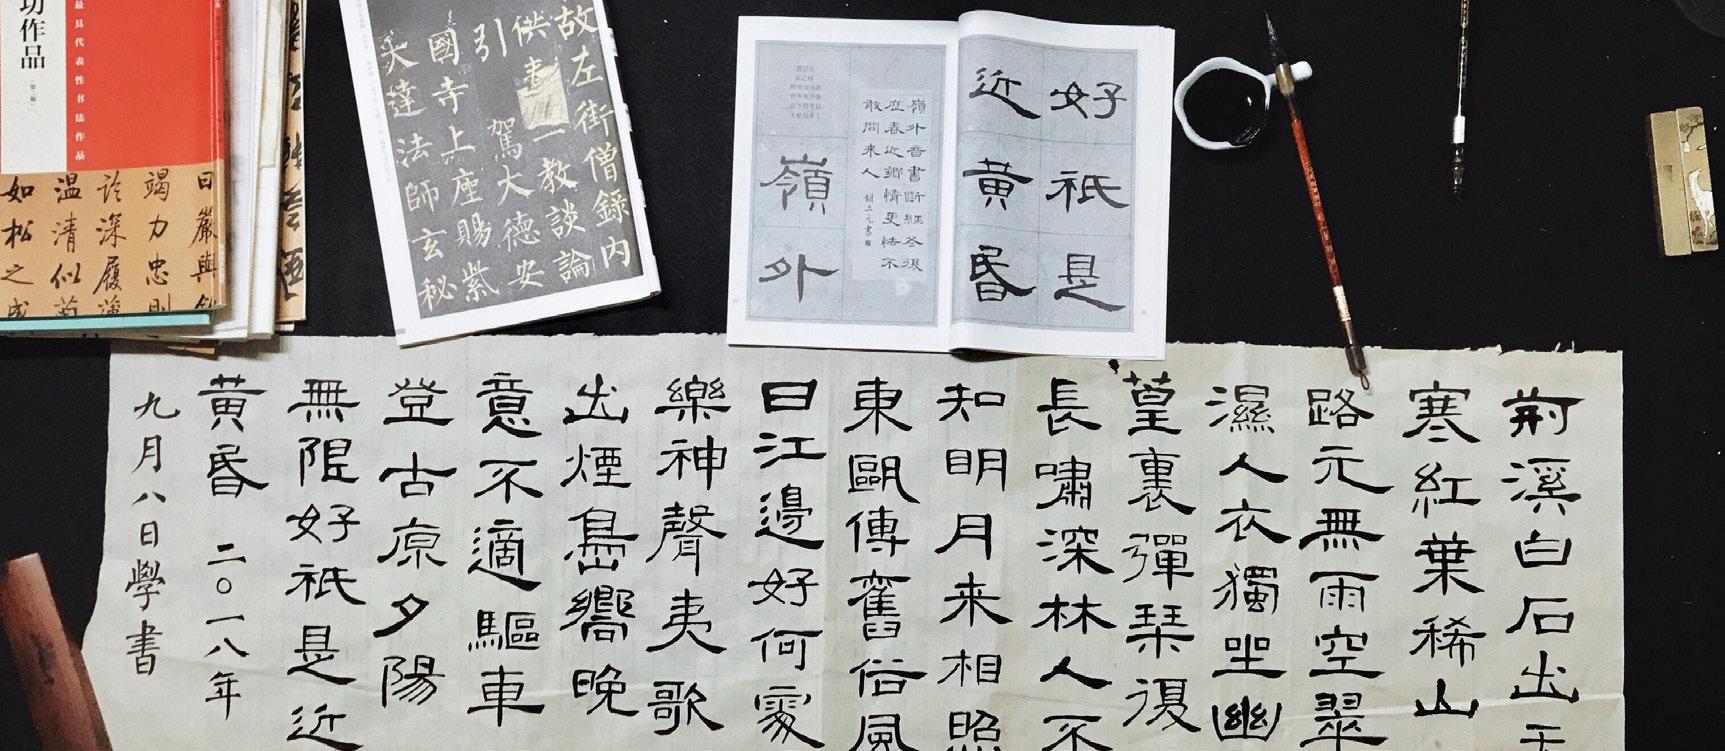 功作品
最具代表性书法作品
曰嚴與
竭力忠則
深履薄
温清似
如松之盛
故左街僧錄内
供奉三教談論
引駕大德安
國寺上座賜紫
大達法師玄秘
好祇是
近黄昏
嶺外音書斷經冬復
歷春近鄉情更怯不
敢問来人
嶺外
荆溪白石出天
寒紅葉稀山
路元無雨空翠
濕人衣獨坐幽
篁裏彈琴復
長嘯深林人不
知明月来相照
東甌傳舊俗風
日江邊好何處
樂神聲夷歌
出煙島嚮晚
意不適驅車
登古原夕陽
無限好祇是近
黄昏 二〇一八年
九月八日學書